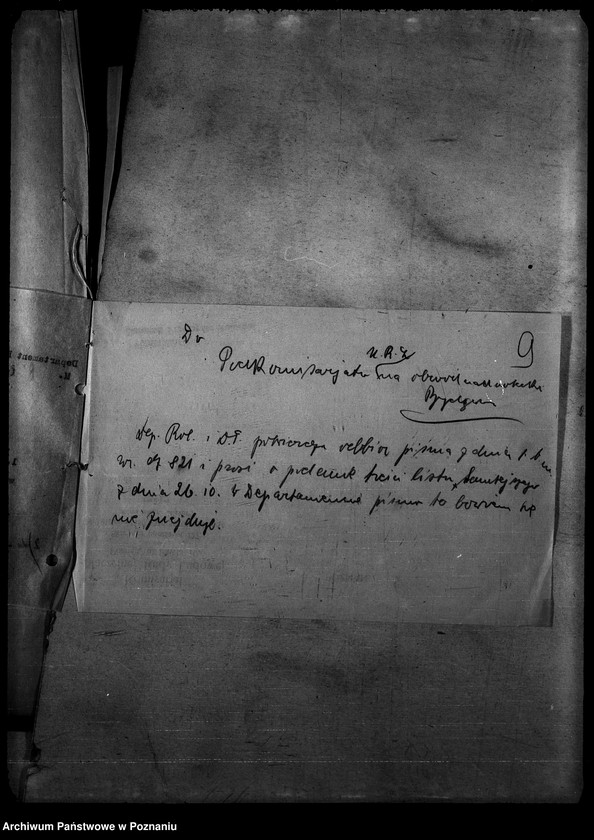 9
Do
N.R.L.
Podkomisarjatu na obwód nadnotecki
Bydgoszcz
Dep. Rol. i D.P. potwierdza odbiór pisma z dnia
nr. 821 i prosi o podanie treści listu
z dnia 26. 10. w Departamencie pismo to bowiem się
nie znajduje.
Departament
Archiwum Państwowe w Poznaniu